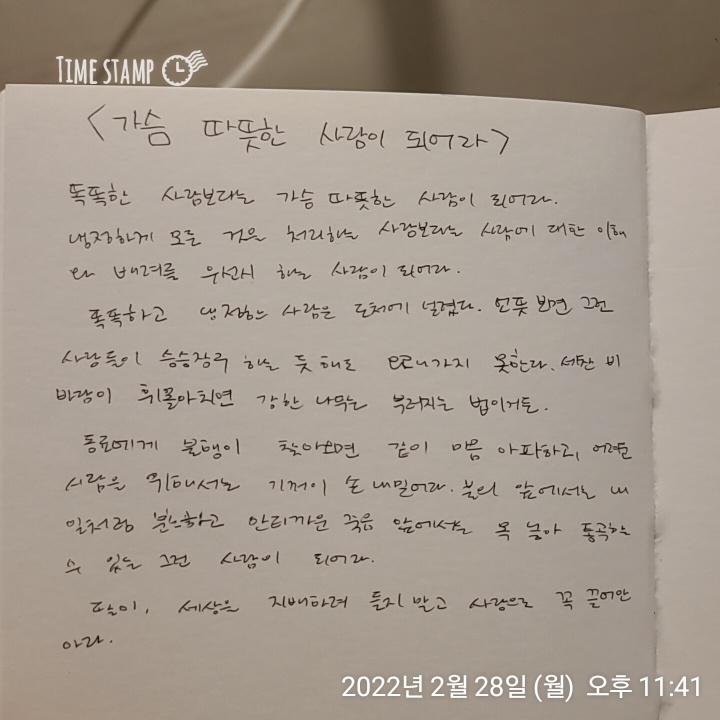 TIME STAMP
<가슴 따뜻한 사람이 되어라>
똑똑한 사람보다는 가슴 따뜻한 사람이 되어라.
냉정하게 모든 것을 처리하는 사람보다는 사람에 대한 이해
와 배려를 우선시 하는 사람이 되어라.
똑똑하고 냉정한 사람은 도처에 널렸다. 언뜻 보면 그런
사람들이 승승장구 하는 듯 해도 가지 못한다. 세찬 비
바람이 휘몰아치면 강한 나무는 부러지는 법이거든.
동료에게 불행이 찾아오면 같이 마음 아파하고, 어려운
사람을 위해서는 기꺼이 손 내밀어라. 불의 앞에서는 내
일처럼 분노하고 안타까운 죽음 앞에서는 목 놓아 통곡하는
수 있는 그런 사람이 되어라.
딸아, 세상을 지배하려 들지 말고 사랑으로 꼭 끌어안
아라.
2022년 2월 28일 (월) 오후 11:41